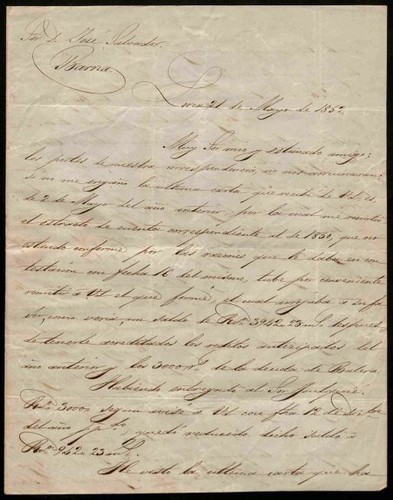 Sor. D. José Salvador.
Barna
Lorca 21 de Mayo de 1852
Muy Sor mio y estimado amigo:
los portes de nuestra correspondencia, no nos arruinarán:
si no me engaño la ultima carta que recibí de Vd. es
de 2 de Mayo del año anterior, por la cual me remitió
el estracto de cuenta correspondiente al de 1850, que no
estando conforme por las razones que le daba en con
testacion con fecha 16 del mismo, tube por conveniente
remitir a Vd el que formé, el cual arrojaba a su fa
vor, como vería, un saldo de Rs. 3942..23 ms. despues
de tenerle acreditados los réditos anticipados del
año anterior y los 3000 rs. de la deuda de
Habiendo entregado al Sor
Rs. 3000 segun avisé a Vd con fha 12 de
del año ppdo, quedó reducido dicho saldo a
Rs. 942..23 ms.
He visto la ultima carta que ha